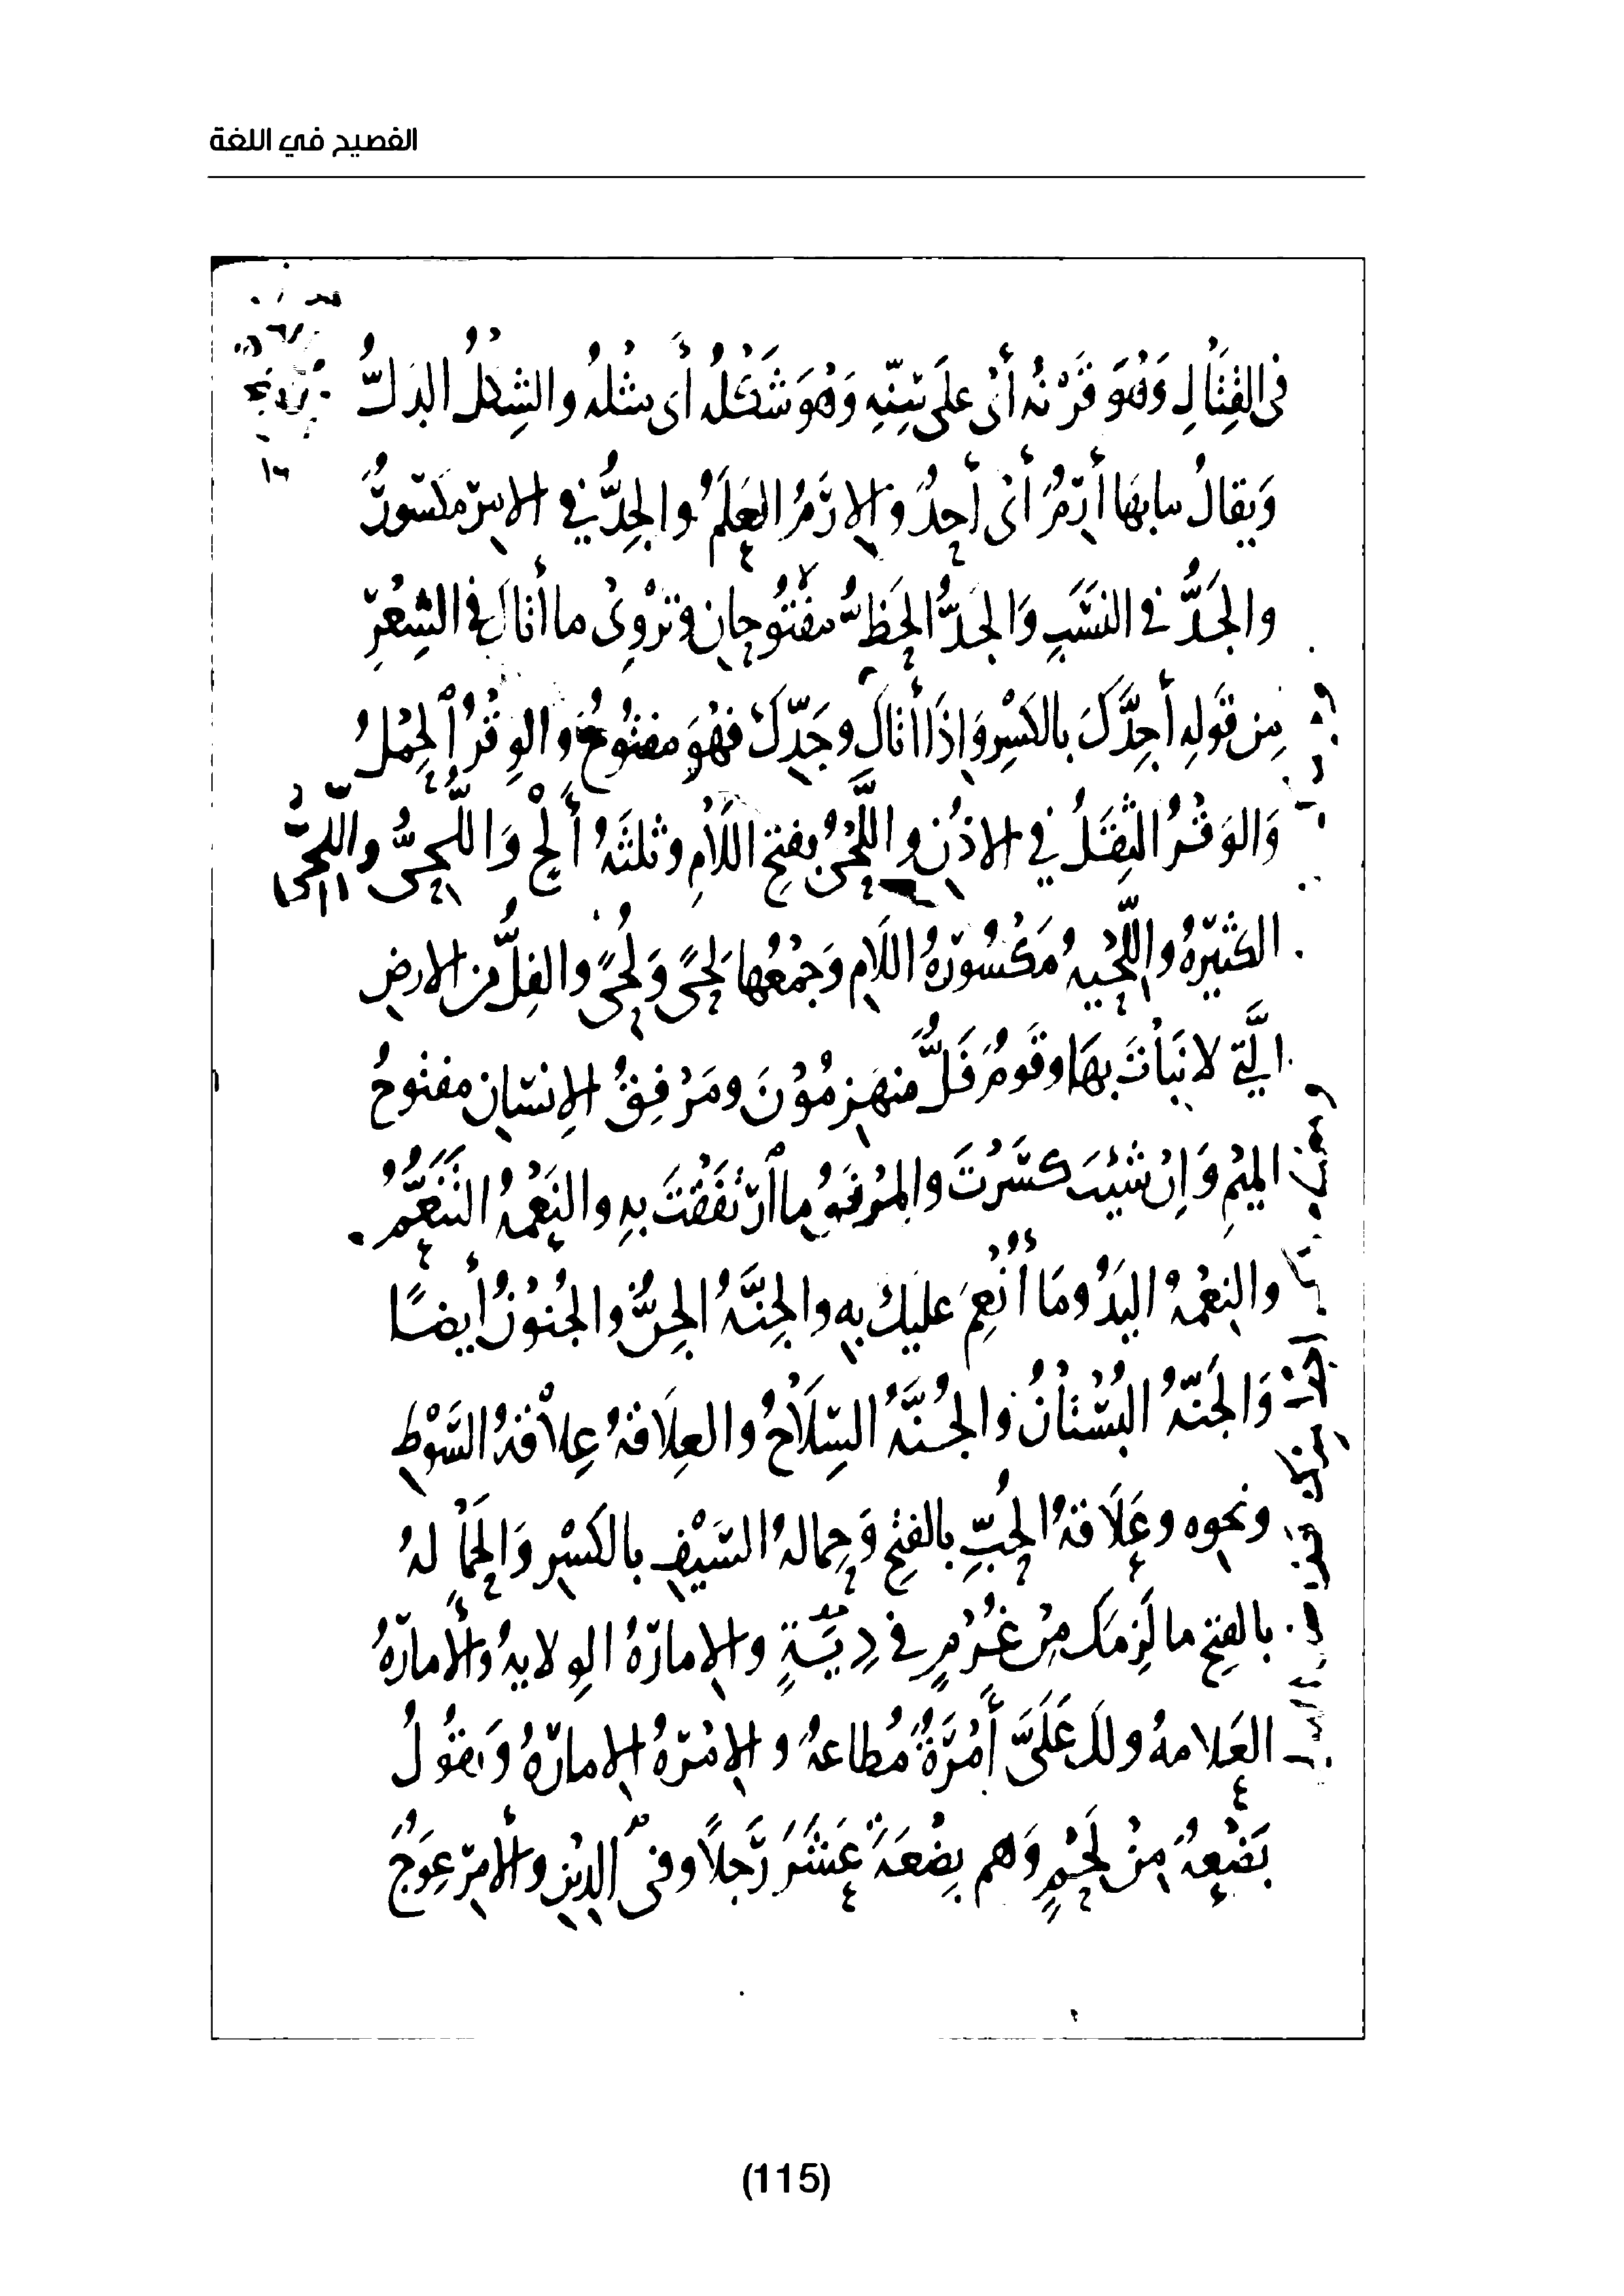 الفصيح في اللغة
في القِتَالِ وَهُوَ قَرْنُه أي على سِنِّهِ وَهُوَ شَكْلُهُ أَى مثلُه والشِكْلُ الدَلُّ
وَيقالُ ما بهَا أَرَمٌ أىْ أحدٌ وَالإرَمُ العَلَمُ والجِدُّ في الامر مكسورٌ
والجَدُّ في النسَبِ وَالجَدُّ الحَظُّ مفْتُوحانِ وَتَرْوِىْ ما أَتَاكَ في الشِعْرِ
مِن قَولِه أَجِدَّكَ بالكَسْرِ وَاذَا أتاكَ وجَدِّكْ فَهُوَ مفتُوحٌ والوِقْرُ الحِمْلُ
وَالوَقْرُ الثِقَلُ في الاذُن واللَّحْىُ بفتح اللَامِ وثلثَهُ أَلْحٍ وَاللُّحِىُّ واللِّحِىُّ
الكثيرَهُ واللِّحْيهُ مَكْسُورَهُ اللَامِ وَجَمْعُها لِحًى وَلُحًى والفِلُّ من الارض
الَّتى لا نَبَاتَ بِهَا وقَومٌ فَلٌّ منهزمُوْنَ ومَرْفِقُ الاِنسَانِ مفتوحُ
الميْمِ وَاِنْ شئتَ كسَرْتَ والمِرْفقُ ما ارْتَفَقْتَ بهِ والنَعْمهُ التَنَعُّمُ
والنِعْمهُ اليَدُ ومَا أُنْعِمَ عليكْ به والجِنَّهُ الجِنُّ والجُنوْنُ أيضًا
وَالجَنَّهُ البُسْتَانُ والجُنَّهُ السِلَاحُ والعِلَاقهُ عِلاقَهُ السَوْطِ
ونحوه وعَلَاقهُ الحُبِّ بالفتح وَحِمالهُ السَيْفِ بالكَسْرِ وَالحَمَالهُ
بالفتح ما لَزِمَك مِنْ غُرْمٍ في دِيَةٍ والاِمارَهُ الوِلايهُ وَالأَمارَهُ
العَلامهُ ولكَ عَلَىَّ أَمْرَةٌ مُطاعهٌ والاِمْرَهُ الاِمارَهُ وَتقُولُ
بَضْعهٌ مِنْ لَحْمٍ وَهم بِضْعَهَ عَشَرَ رَجلًا وفى الدِيْنِ والأَمْرِ عِوَجٌ
(115)